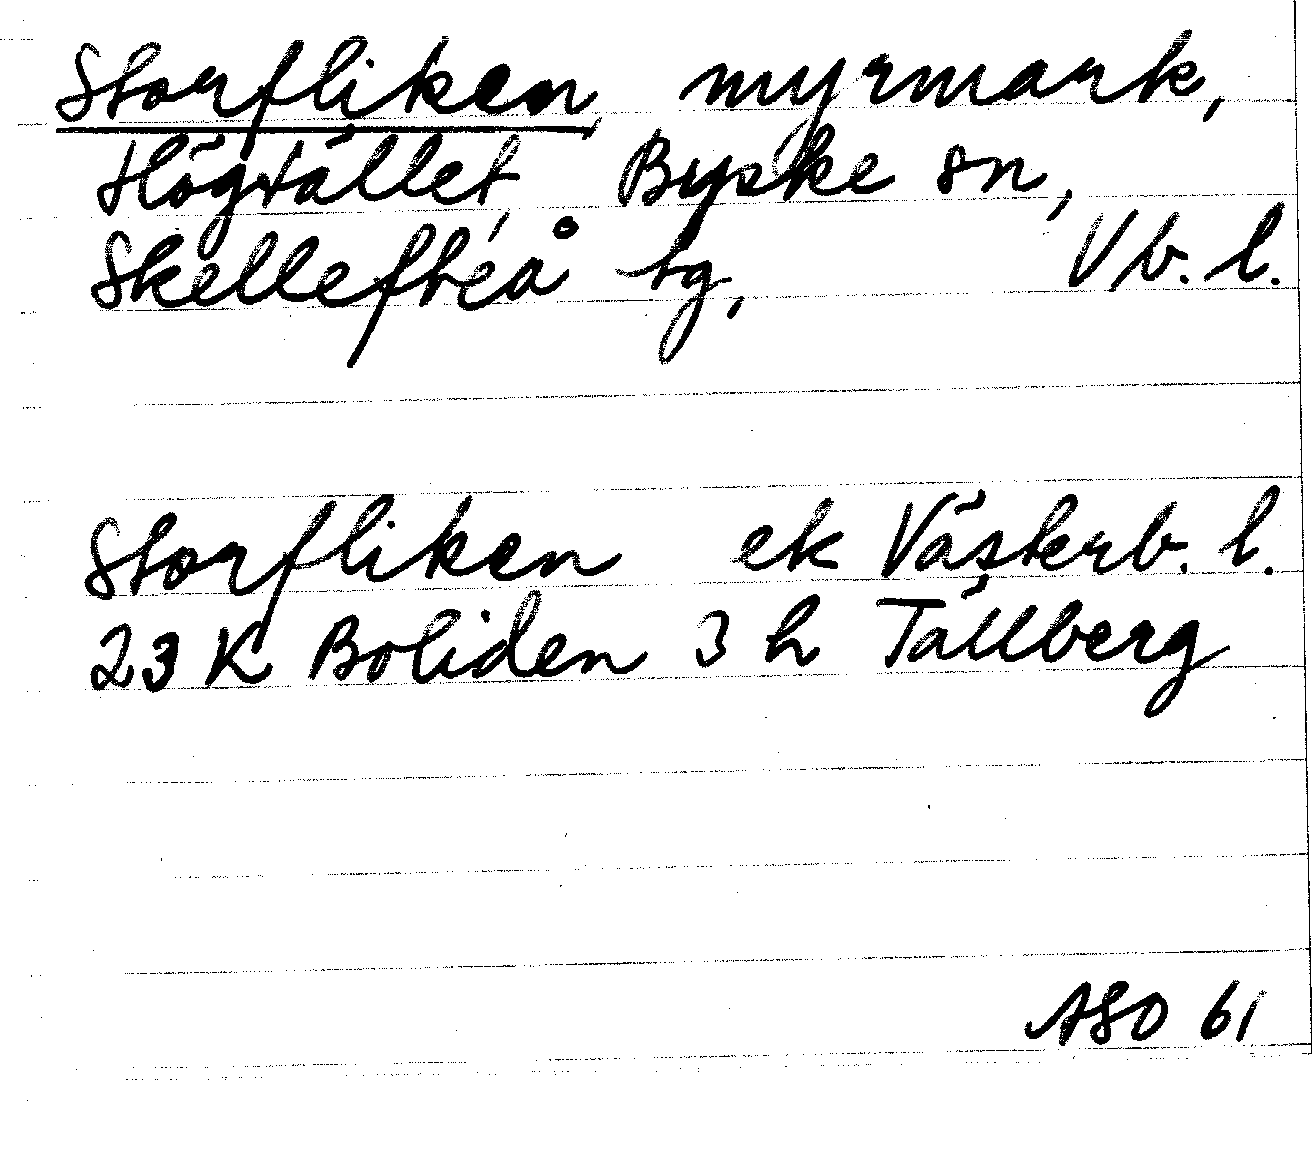 Storfliken, myrmark,
Högtället, Byske sn,
Skellefteå tg, Vb. l.
Storfliken ek Västerb. l.
23 K Boliden 3 h Tällberg
ASO 61